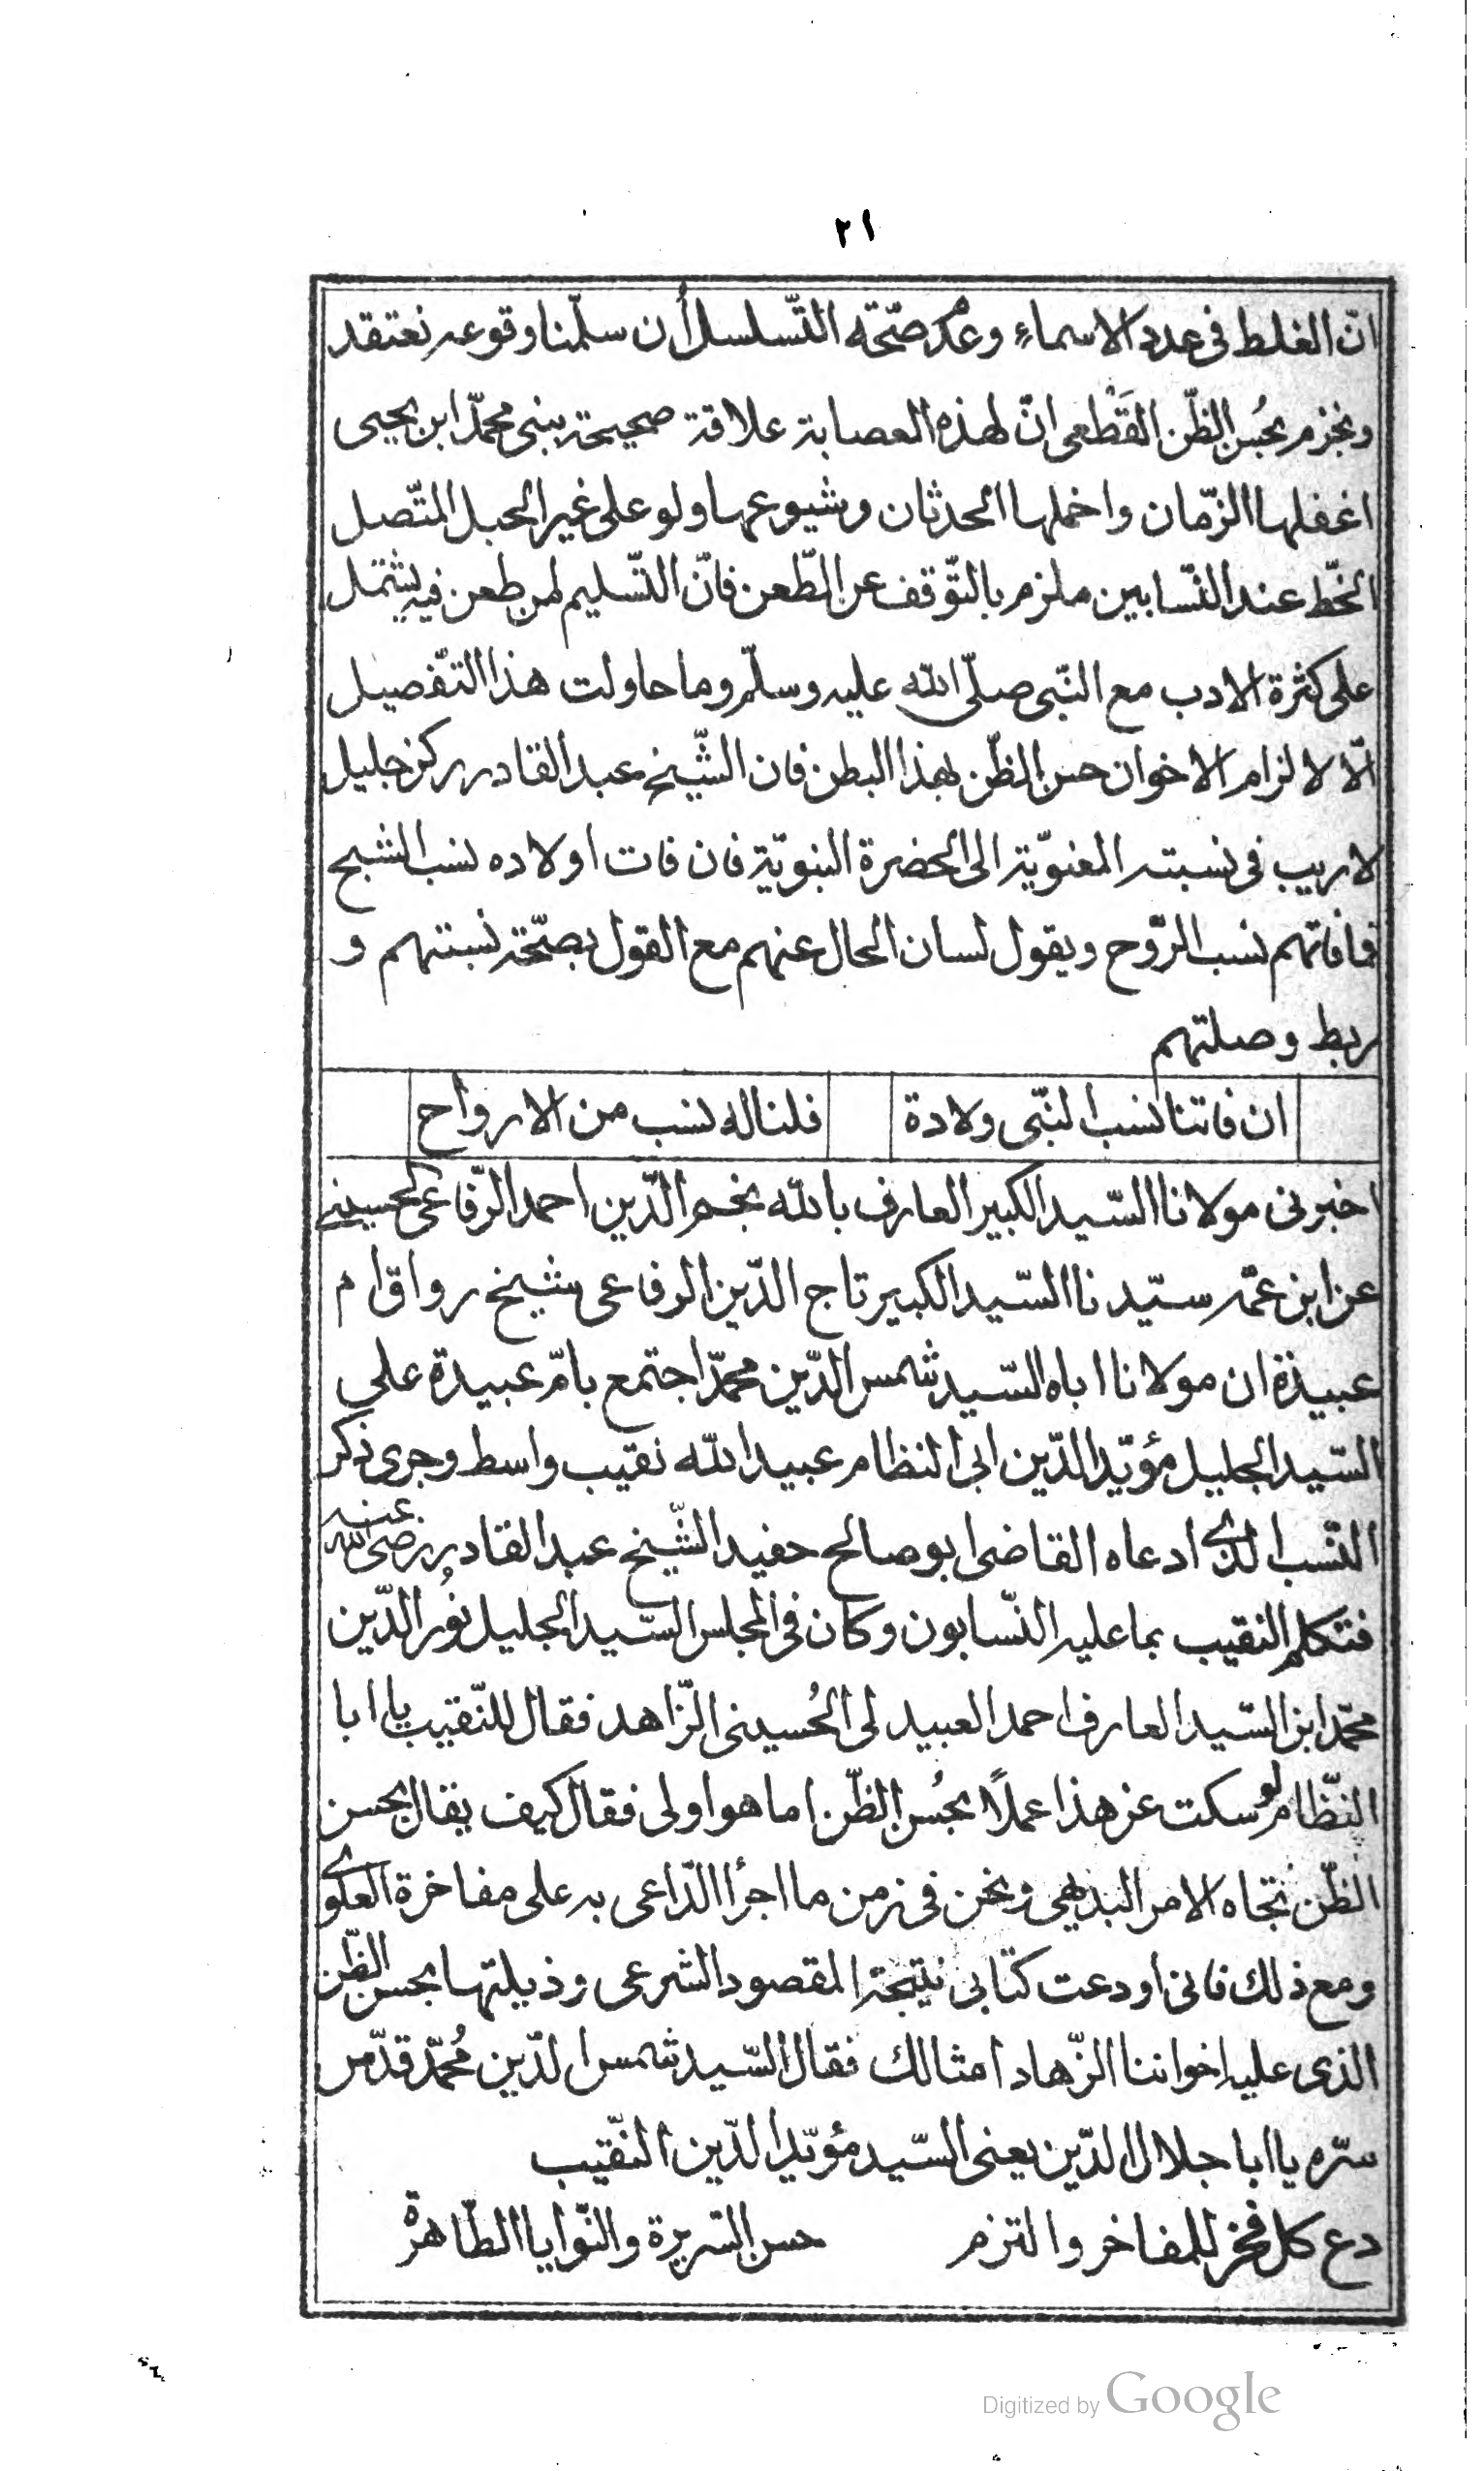 ٢١
انّ الغلط فی عدد الاسماء وعدم صحّة التّسلسل أن سلّمنا وقوعه نعتقد
ونجزم بحُسن الظّن القَطْعی انّ لهذه العصابة علاقة صحیحة ببنی محمّد ابن یحیی
اغفلها الزّمان واخملها الحدثان وشیوعها ولو علی غیر الحبل المتّصل
الخّط عند النّسابین ملزم بالتّوقف عن الطّعن فانّ التّسلیم لمن طعن فیه یشتمل
علی کثرة الادب مع النّبی صلّی الله علیه وسلّم وما حاولت هذا التفصیل
الّا لالزام الاخوان حسن الظّن بهذا البطن فان الشّیخ عبد القادر رکن جلیل
لاریب فی نسبته المعنویّة الی الحضرة النبویّة فان فات اولاده نسب الشبح
فما فاتهم نسب الرّوح ویقول لسان الحال عنهم مع القول بصحّة نسبتهم و
ربط وصلتهم
ان فاتنا نسب النّبی ولادة فلنا له نسب من الارواح
اخبرنی مولانا السّید الکبیر العارف بالله نجم الدّین احمد الرّفاعی الحسینی
عن ابن عمّه سیّدنا السّید الکبیر تاج الدّین الرفاعی شیخ رواق ام
عبیدة ان مولانا اباه السّید شمس الدّین محمّد اجتمع بامّ عبیدة علی
السّید الجلیل مؤیّد الدّین ابی النظام عبید الله نقیب واسط وجری ذکر
النّسب الذی ادعاه القاضی ابو صالح حفید الشّیخ عبد القادر رضی الله عنه
فتکلم النقیب بما علیه النّسابون وکان فی المجلس السّید الجلیل نُور الدّین
محمّد ابن السّید العارف احمد العبیدلی الحُسینی الزّاهد فقال للنّقیب یا ابا
النّظام لو سکت عن هذا عملاً بحُسن الظّن اما هو اولی فقال کیف یقال بحسن
الظّن تجاه الامر البدیهی ونحن فی زمن ما اجرأ الدّاعی به علی مفاخرة العلوی
ومع ذلك فانی اودعت کتابی نتیجة المقصود الشرعی وذیلتها بحسن الظّن
الذی علیه اخواننا الزّهاد امثالك فقال السّید شمس الدّین مُحمّد قدّس
سرّه یا ابا جلال الدّین یعنی السّید مؤیّد الدّین النّقیب
دع کل فخر للمفاخر والتزم حسن السّریرة والنّوایا الطّاهرة
Digitized by Google